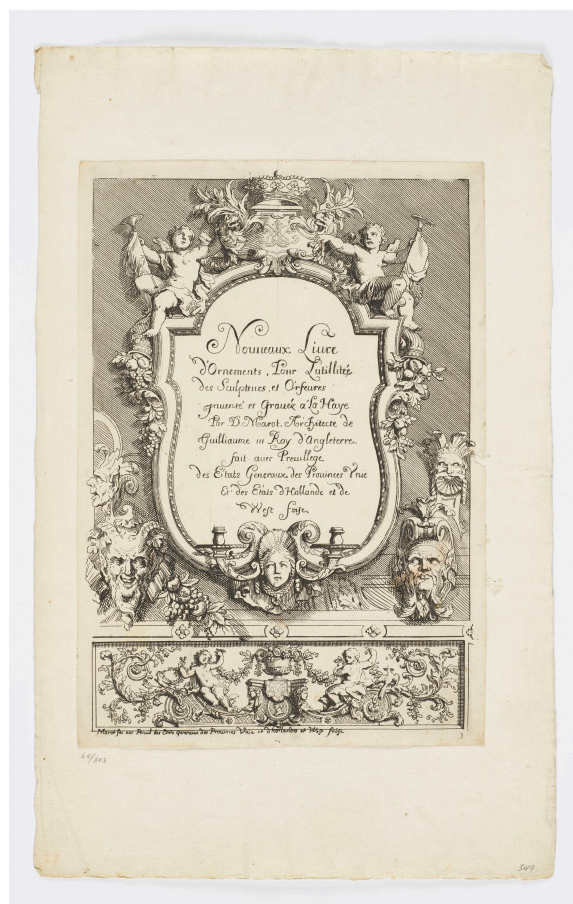 Nouueaux Liure
d'Ornements, Pour Lutillitée
des Sculpteurs, et Orfeures
jnuenté et Grauéz a La Haye
Par D. Marot. Architecte de
Guilliaume III Roy d'Angleterre.
fait auec Preuillege,
des Etats Generaux des Prouinces Vnie
Et des Etats d'Hollande et de
West frise
Marot fec auec Preuil des Etats generaux des Prouinces Vnie et d'Hollandes et West frise
1
344